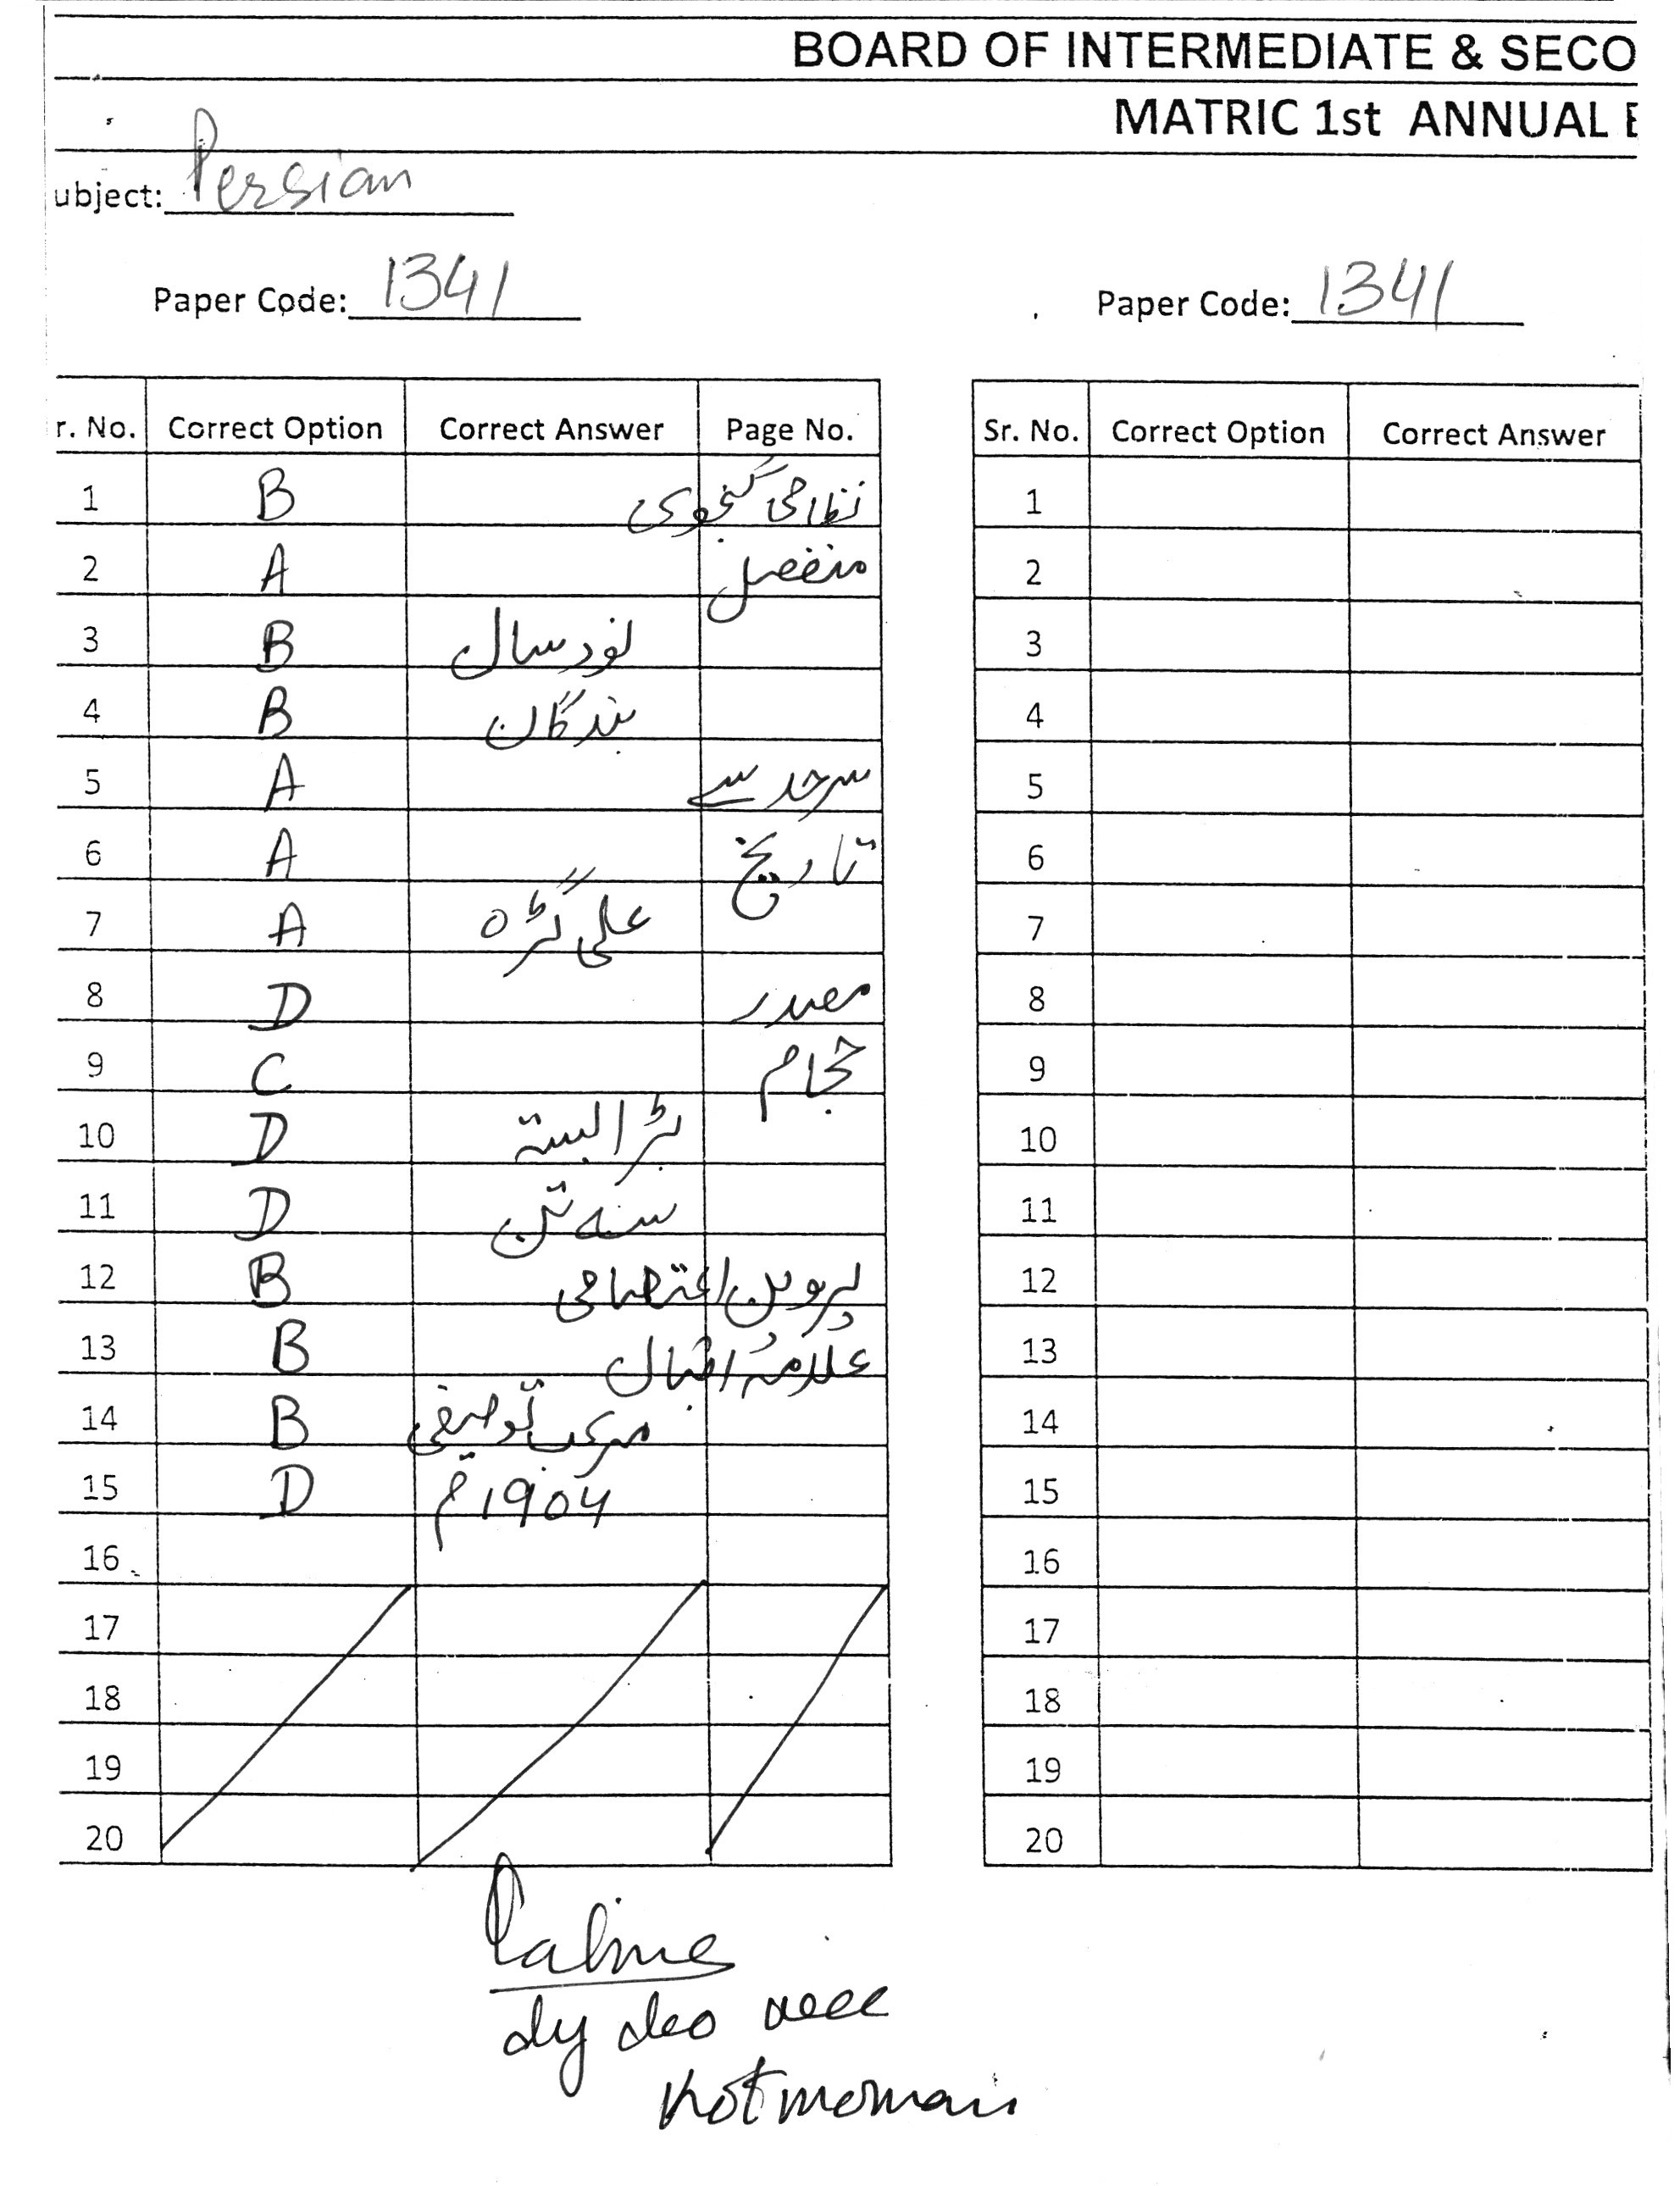 BOARD OF INTERMEDIATE & SECO
MATRIC 1st ANNUAL E
ubject: Persian
Paper Code: 1341 Paper Code: 1341
r. No. Correct Option Correct Answer Page No. Sr. No. Correct Option Correct Answer
1 B نظامی گنجوی 1
2 A منفصل 2
3 B نود سال 3
4 B بندگان 4
5 A سرحد سے 5
6 A تاریخ 6
7 A علی گڑہ 7
8 D مصدر 8
9 C حجام 9
10 D بڑا بستہ 10
11 D سنہ تن 11
12 B پروین اعتصامی 12
13 B علامہ اقبال 13
14 B مرکب توصیفی 14
15 D 1904ء 15
16 16
17 17
18 18
19 19
20 20
dy deo
Kotmoman